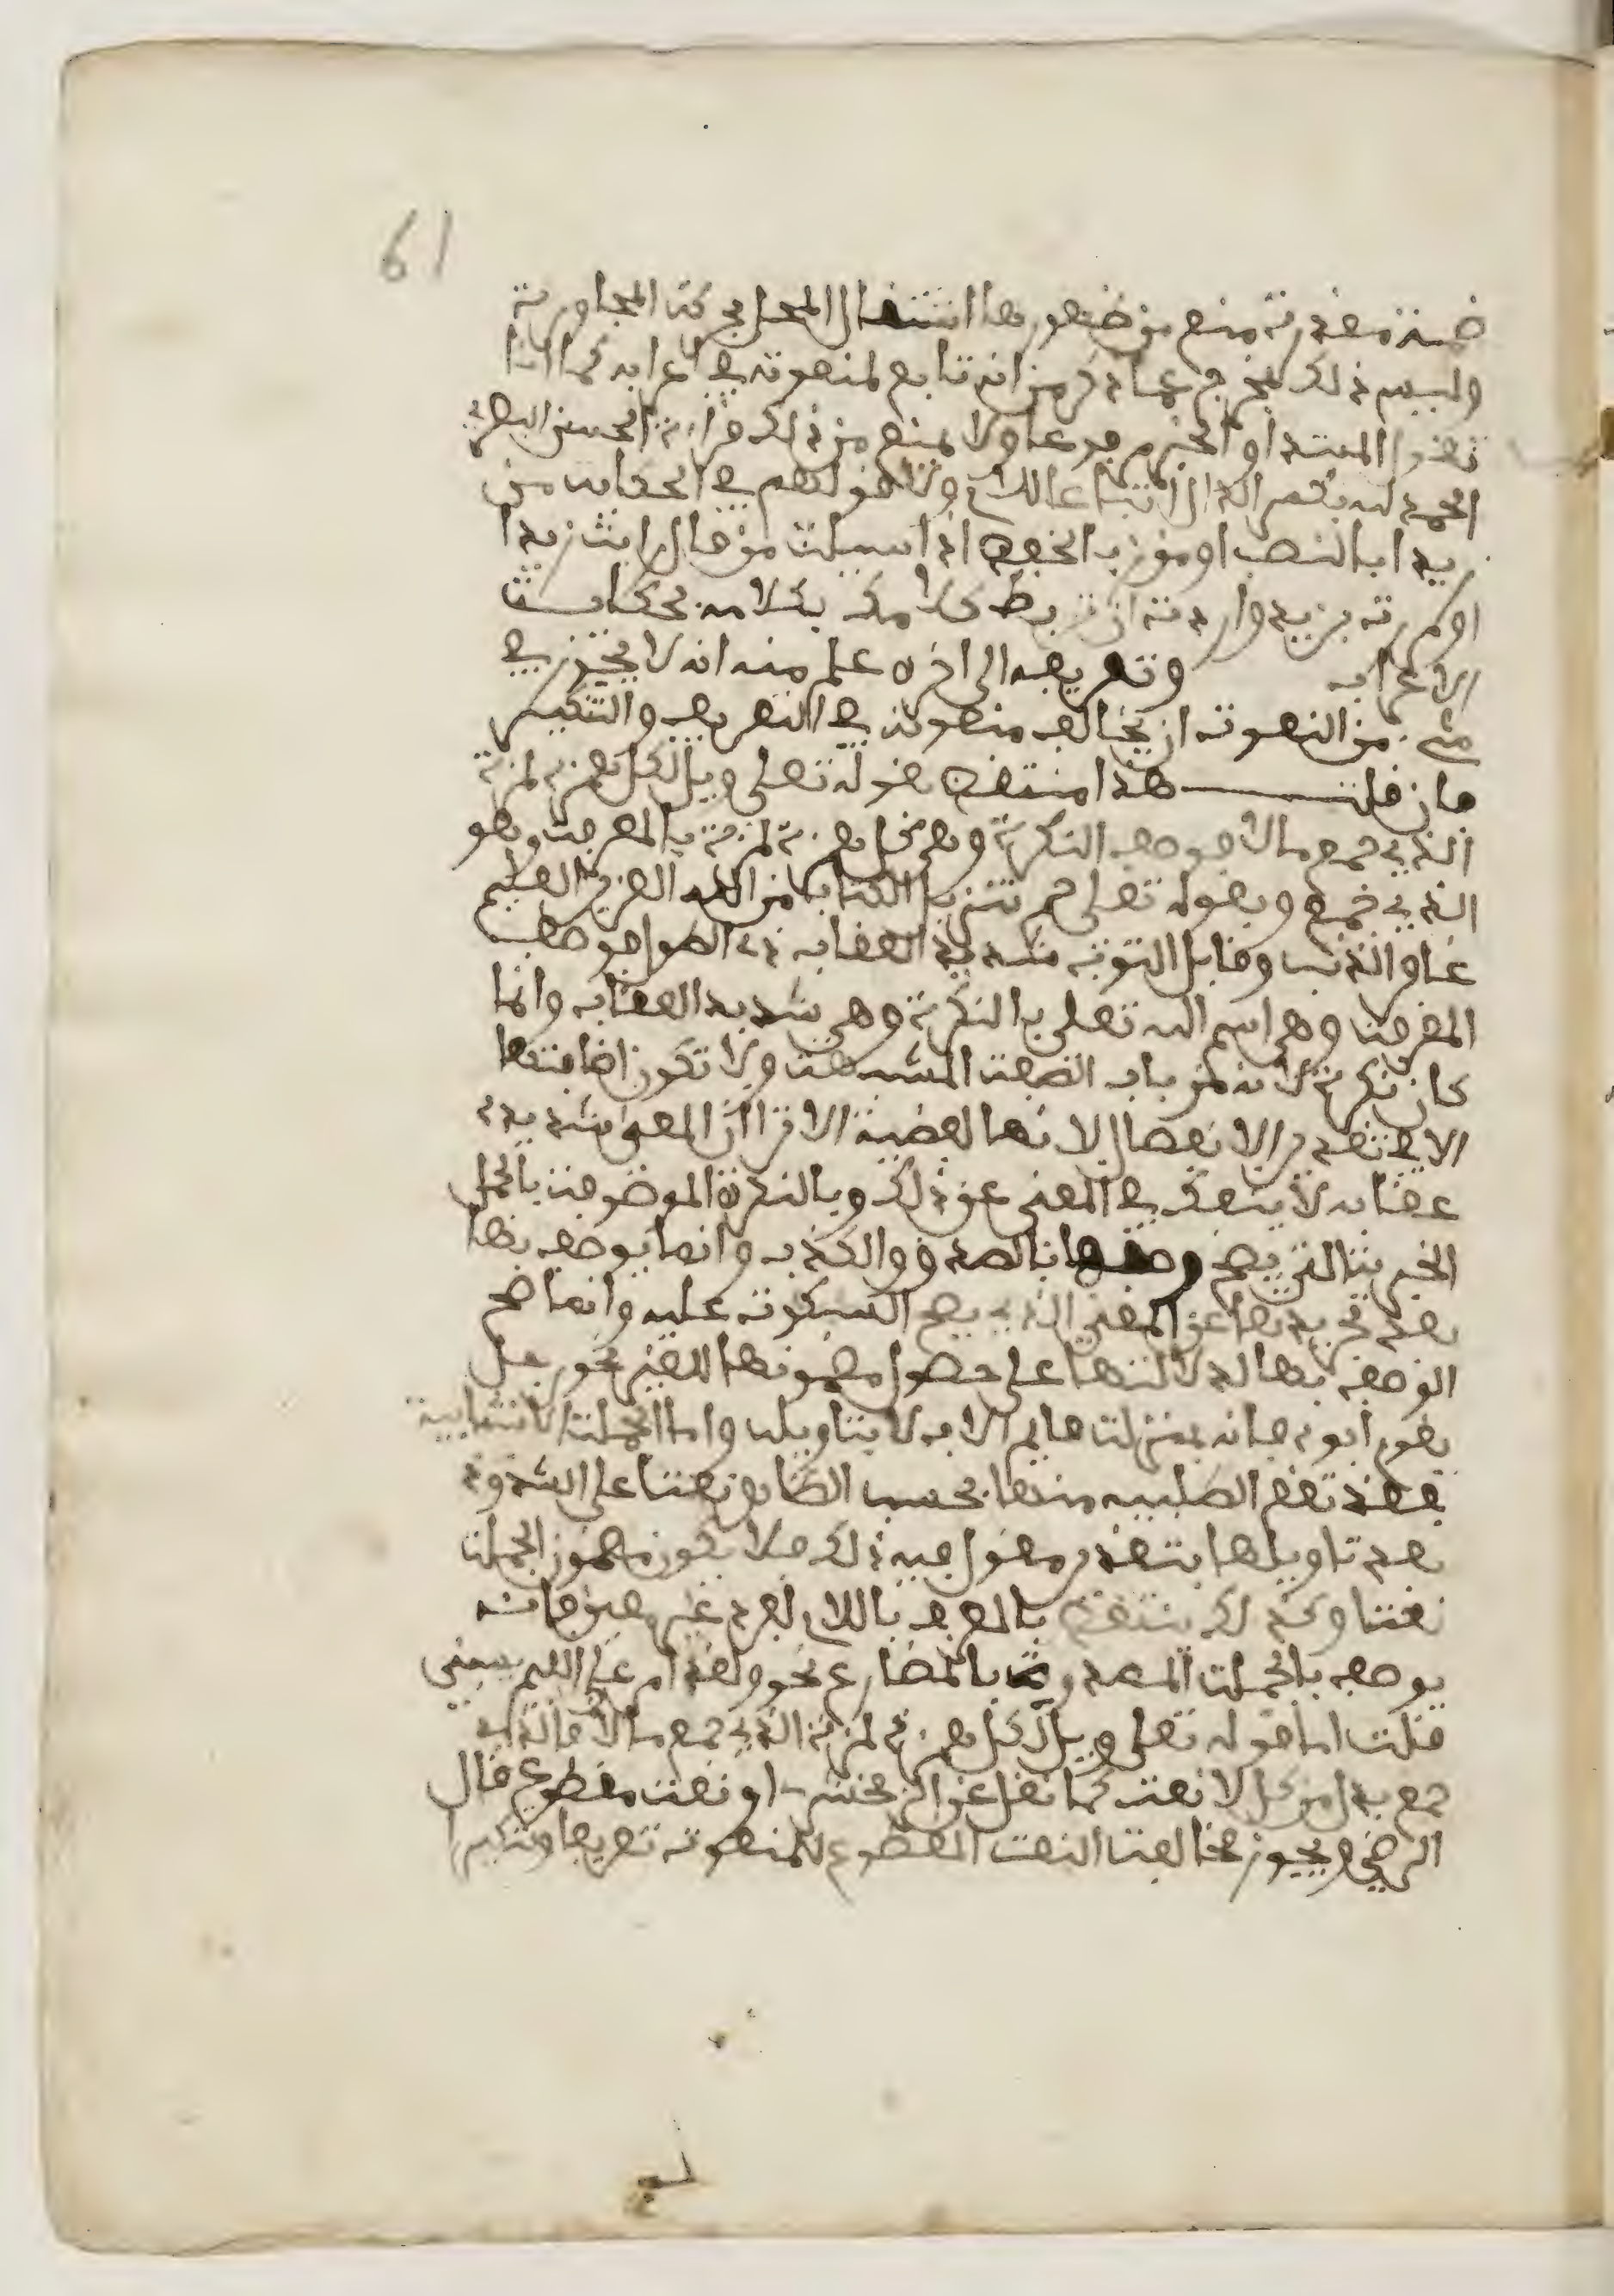 61
ضمة مقدرة منع من ظهورها اشتغال المحل بحركة المجاورة
وليس ذلك بمخرج عما ذكر من انه تابع لمنعوته في اعرابه كما ان
تقول المبتدا والخبر مرفوعان ولا يمنع من ذلك قراءة الحسن البصري
الحمد لله بكسر الدال اتباعا للام ولا قولهم في الحكاية من
زيدا بالنصب او من زيد بالخفض اذا سيلت من قال رايت زيدا
او مررت بزيد واردت ان تربط كلامك بكلامه بحكاية
الاعراب وتعريفه الى اخره علم منه انه لا يجوز في
شيء من النعوت ان يخالف منعوته في التعريف والتنكير
فان قلت هذا منتقض بقوله تعلى ويل لكل همزة لمزة
الذي جمع مالا فوصف النكرة وهي كل همزة لمزة بالمعرفة وهو
الذي جمع وبقوله تعلى حم تنزيل الكتاب من الله العزيز العليم
غافر الذنب وقابل التوب شديد العقاب ذي الطول فوصف
المعرفة وهي اسم الله تعلى بالنكرة وهي شديد العقاب وانما
كان نكرة لانه من باب الصفة المشبهة ولا تكون اضافتها
الا في تقدير الانفصال لانها لفظية الا ترا ان المعنى شديد
عقابه لا ينفك في المعنى عن ذلك وبالنكرة الموصوفة بالجمل
الخبرية التي يصح وصفها بالصدق والكذب وانما يوصف بها
بعد تجريدها عن المعنى الذي يصح السكوت عليه وانما صح
الوصف بها لدلالتها على حصول مضمونها للمعين نحو رجل
يقوم ابوه فانه بمنزلة قايم الاب لا بتاويله واما الجملة الانشايية
فقد تقع الطلبية منها بحسب الظاهر نعتا على الشذوذ
بعد تاويلها بتقدير مقول فيه ذلك فلا يكون مضمون الجملة
نعتا وكذلك ينتقض بالمعرف باللام لفرد غير معين فانه
يوصف بالجملة المصدرة بالمضارع نحو ولقد امر على اللئيم يسبني
قلت اما قوله تعلى ويل لكل همزة لمزة الذي جمع مالا فالذي
جمع بدل من كل لا نعت كما نقل عن الزمخشري او نعت مقطوع قال
الرضي ويجوز مخالفة النعت المقطوع للمنعوت تعريفا وتنكيرا